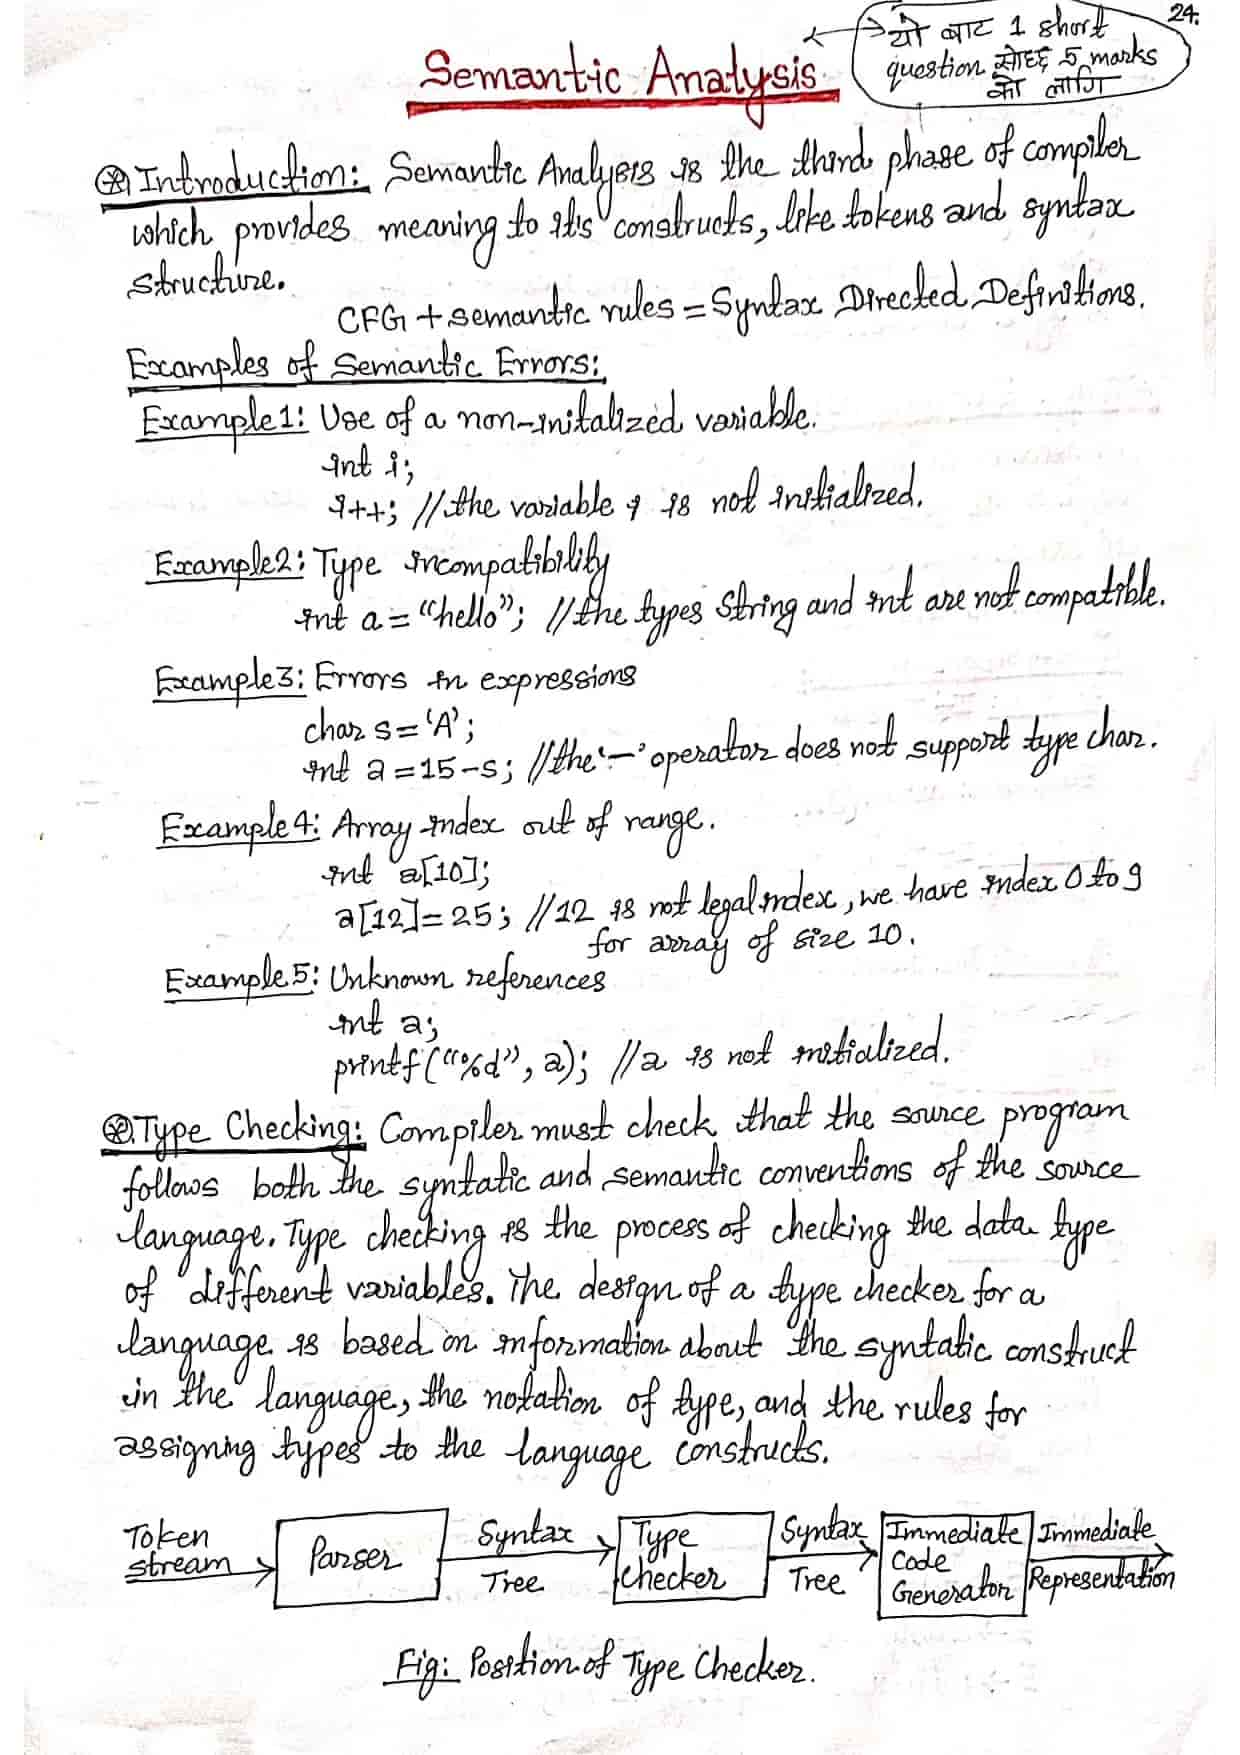 24.
यो बाट 1 short
question सोध्छ 5 marks
को लागि
Semantic Analysis
Introduction: Semantic Analysis is the third phase of compiler
which provides meaning to it's constructs, like tokens and syntax
structure.
CFG + semantic rules = Syntax Directed Definitions.
Examples of Semantic Errors:
Example1: Use of a non-initalized variable.
int i;
i++; //the variable i is not initialized.
Example2: Type incompatibility
int a = "hello"; //the types String and int are not compatible.
Example3: Errors in expressions
char s = 'A';
int a = 15-s; //the '-' operator does not support type char.
Example4: Array index out of range.
int a[10];
a[12] = 25; //12 is not legal index, we have index 0 to 9
for array of size 10.
Example5: Unknown references
int a;
printf("%d", a); //a is not initialized.
Type Checking: Compiler must check that the source program
follows both the syntatic and semantic conventions of the source
language. Type checking is the process of checking the data type
of different variables. The design of a type checker for a
language is based on information about the syntatic construct
in the language, the notation of type, and the rules for
assigning types to the language constructs.
Token stream
Parser
Syntax Tree
Type Checker
Syntax Tree
Immediate Code Generator
Immediate Representation
Fig: Position of Type Checker.